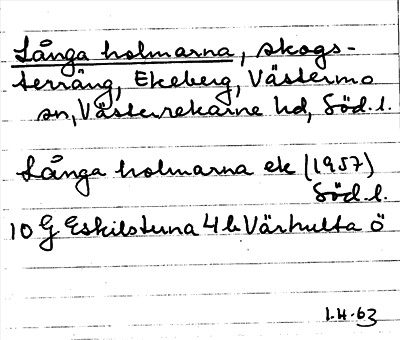 Långa holmarna, skogs-
terräng, Ekeberg, Västermo
sn, Västerrekarne hd, Söd.l.
Långa holmarna ek (1957)
Söd.l.
10 G Eskilstuna 4 b Värhulta ö
1.H.63